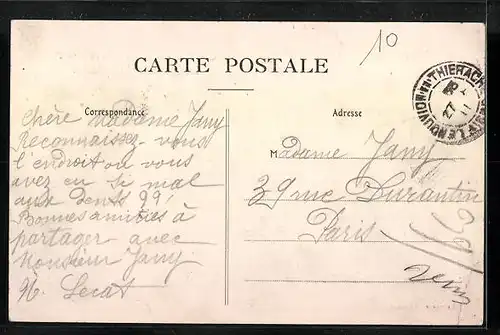 10
CARTE POSTALE
Correspondance
Adresse
LE NOUVION EN THIERACHE
27
11
Chère Madame Jany
Reconnaissez-vous
l'endroit ou vous
avez eu si mal
aux dents
Bonnes amitiés à
partager avec
Monsieur Jany
Lecat
Madame Jany
39 rue Durantin
Paris